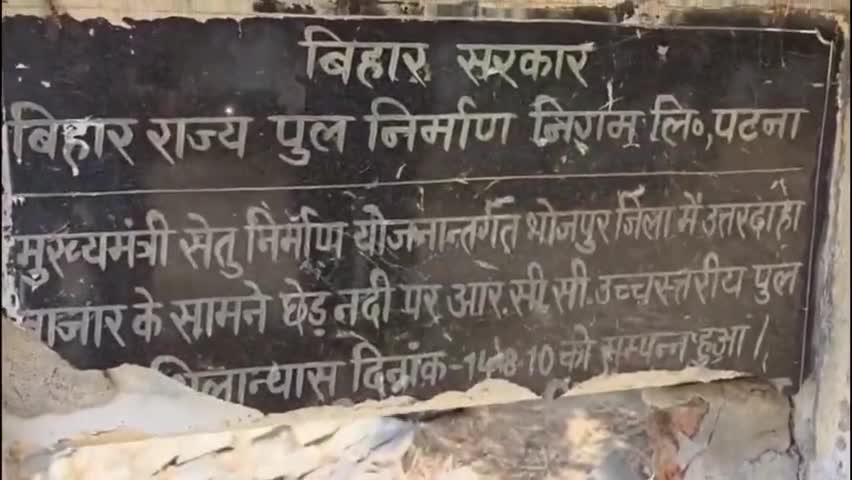 बिहार सरकार
बिहार राज्य पुल निर्माण निगम लि०, पटना
मुख्यमंत्री सेतु निर्माण योजनान्तर्गत भोजपुर जिला में उत्तरदाहा
बाजार के सामने छेड़ नदी पर आर.सी.सी. उच्चस्तरीय पुल
शिलान्यास दिनांक-14-8-10 को सम्पन्न हुआ।